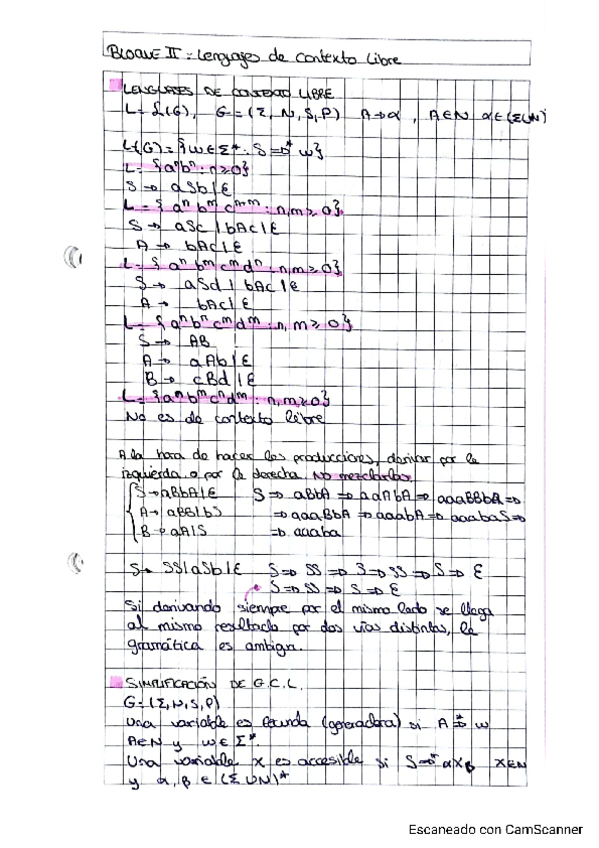 BLOQUE II: Lenguajes de contexto libre
LENGUAJES DE CONTEXTO LIBRE
L = L(G), G = (Σ, N, S, P) A → α, A ∈ N α ∈ (Σ∪N)
L(G) = {w ∈ Σ* : S ⇒* w}
L = {aⁿbⁿ : n ≥ 0}
S → aSb | ε
L = {aⁿ bᵐ cⁿ⁺ᵐ : n, m ≥ 0}
S → aSc | bAc | ε
A → bAc | ε
L = {aⁿ bᵐ cᵐ dⁿ : n, m ≥ 0}
S → aSd | bAc | ε
A → bAc | ε
L = {aⁿbⁿ cᵐdᵐ : n, m ≥ 0}
S → AB
A → aAb | ε
B → cBd | ε
L = {aⁿbᵐcⁿdᵐ : n, m ≥ 0}
No es de contexto libre
A la hora de hacer las producciones, derivar por la
izquierda o por la derecha. No mezclarlas
S → aBbA | ε S ⇒ aBbA ⇒ aaAbA ⇒ aaaBBbA ⇒
A → aBB | bS ⇒ aaaBbA ⇒ aaabA ⇒ aaabaS ⇒
B → aA | S ⇒ aaaba
S → SS | aSb | ε S ⇒ SS ⇒ S ⇒ SS ⇒ S ⇒ ε
S ⇒ SS ⇒ S ⇒ ε
Si derivando siempre por el mismo lado se llega
al mismo resultado por dos vías distintas, la
gramática es ambigua.
SIMPLIFICACIÓN DE G.C.L.
G = (Σ, N, S, P)
Una variable es fecunda (generadora) si A ⇒* w
A ∈ N y w ∈ Σ*.
Una variable X es accesible si S ⇒* αXβ X ∈ N
y α, β ∈ (Σ∪N)*
Escaneado con CamScanner